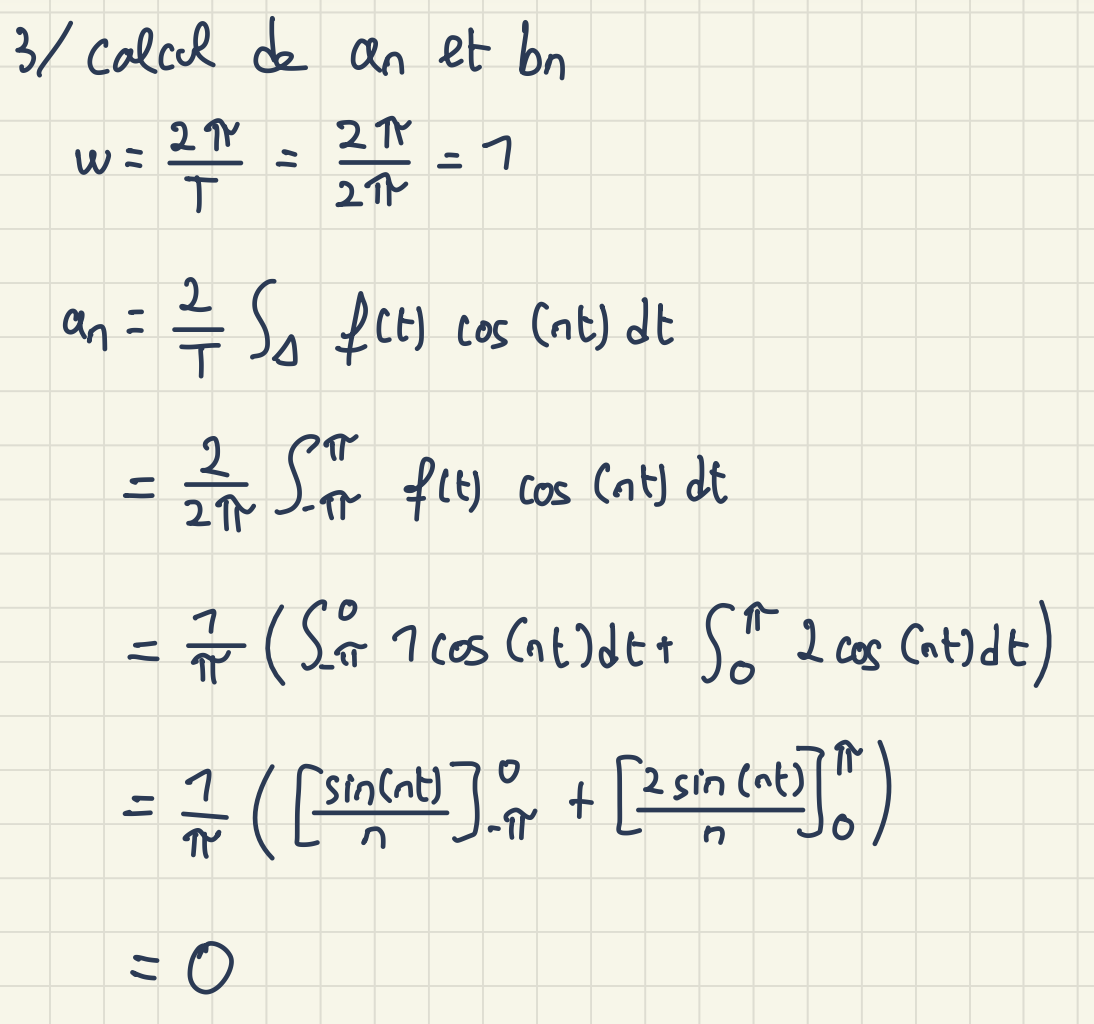 3/ calcul de an et bn
w = 2π/T = 2π/2π = 1
an = 2/T ∫Δ f(t) cos (nt) dt
= 2/2π ∫-π^π f(t) cos (nt) dt
= 1/π (∫-π^0 1 cos (nt) dt + ∫0^π 2 cos (nt) dt)
= 1/π ([sin(nt)/n]-π^0 + [2 sin (nt)/n]0^π)
= 0